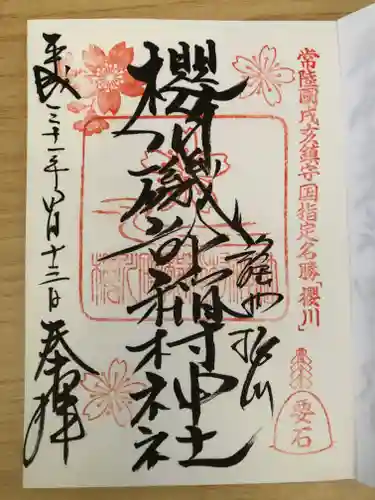 常陸國戌亥鎮守 国指定名勝「櫻川」
要石
櫻川
磯部稲村神社
平成三十一年四月十三日
奉拝